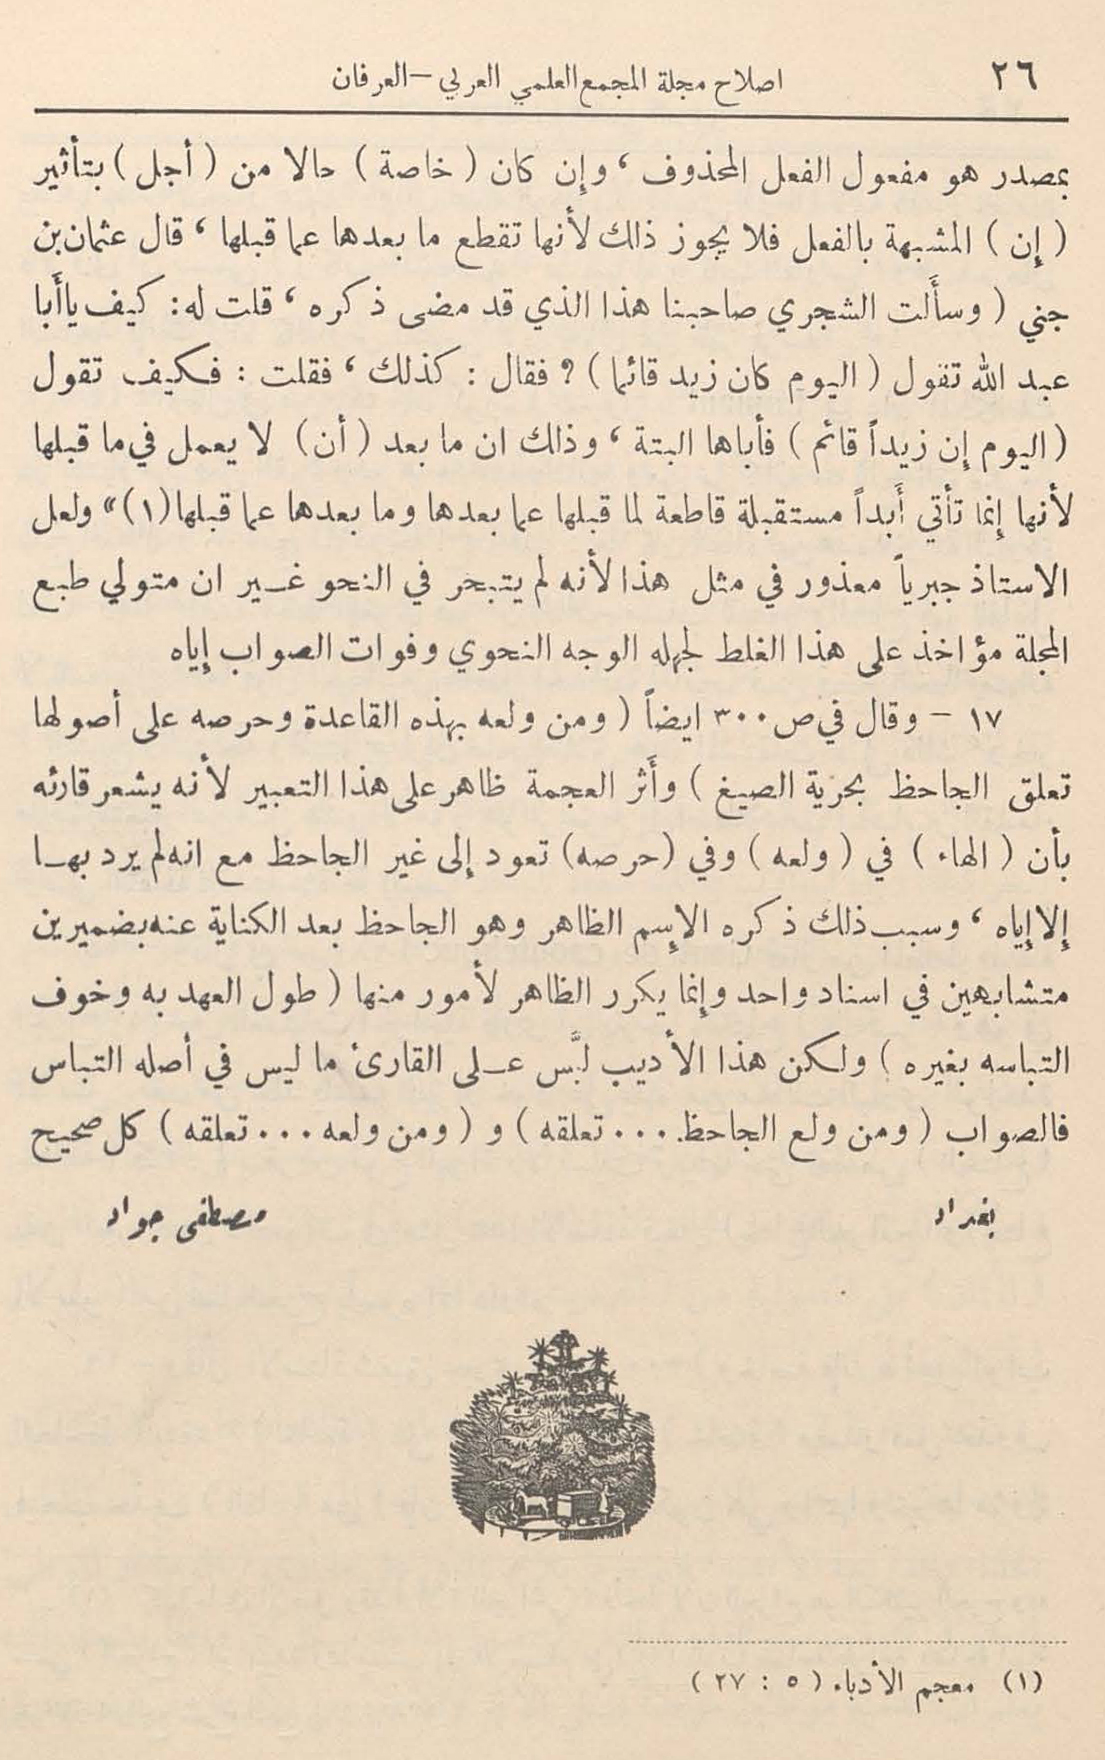 ٢٦
اصلاح مجلة المجمع العلمي العربي – العرفان
بمصدر هو مفعول الفعل المحذوف ، وإن كان ( خاصة ) حالا من ( أجل ) بتأثير
( إن ) المشبهة بالفعل فلا يجوز ذلك لأنها تقطع ما بعدها عما قبلها ، قال عثمان بن
جني ( وسأَلت الشجري صاحبنا هذا الذي قد مضى ذكره ، قلت له : كيف ياأَبا
عبد الله تقول ( اليوم كان زيد قائما ) ؟ فقال : كذلك ، فقلت : فكيف تقول
( اليوم إن زيداً قائم ) فأباها البتة ، وذلك ان ما بعد ( أن ) لا يعمل في ما قبلها
لأنها إنما تأتي أَبداً مستقبلة قاطعة لما قبلها عما بعدها وما بعدها عما قبلها (١) » ولعل
الاستاذ جبرياً معذور في مثل هذا لأنه لم يتبحر في النحو غير ان متولي طبع
المجلة مؤاخذ على هذا الغلط لجهله الوجه النحوي وفوات الصواب إياه
١٧ – وقال في ص ٣٠٠ ايضاً ( ومن ولعه بهذه القاعدة وحرصه على أصولها
تعلق الجاحظ بحرية الصيغ ) وأَثر العجمة ظاهر على هذا التعبير لأنه يشعر قارئه
بأن ( الهاء ) في ( ولعه ) وفي ( حرصه ) تعود إلى غير الجاحظ مع انه لم يرد بها
إلا إياه ، وسبب ذلك ذكره الإسم الظاهر وهو الجاحظ بعد الكناية عنه بضميرين
متشابهين في اسناد واحد وإنما يكرر الظاهر لأمور منها ( طول العهد به وخوف
التباسه بغيره ) ولكن هذا الأديب لبَّس على القارئ ما ليس في أصله التباس
فالصواب ( ومن ولع الجاحظ ... تعلقه ) و ( ومن ولعه ... تعلقه ) كل صحيح
بغداد
مصطفى جواد
(١) معجم الأدباء ( ٥ : ٢٧ )